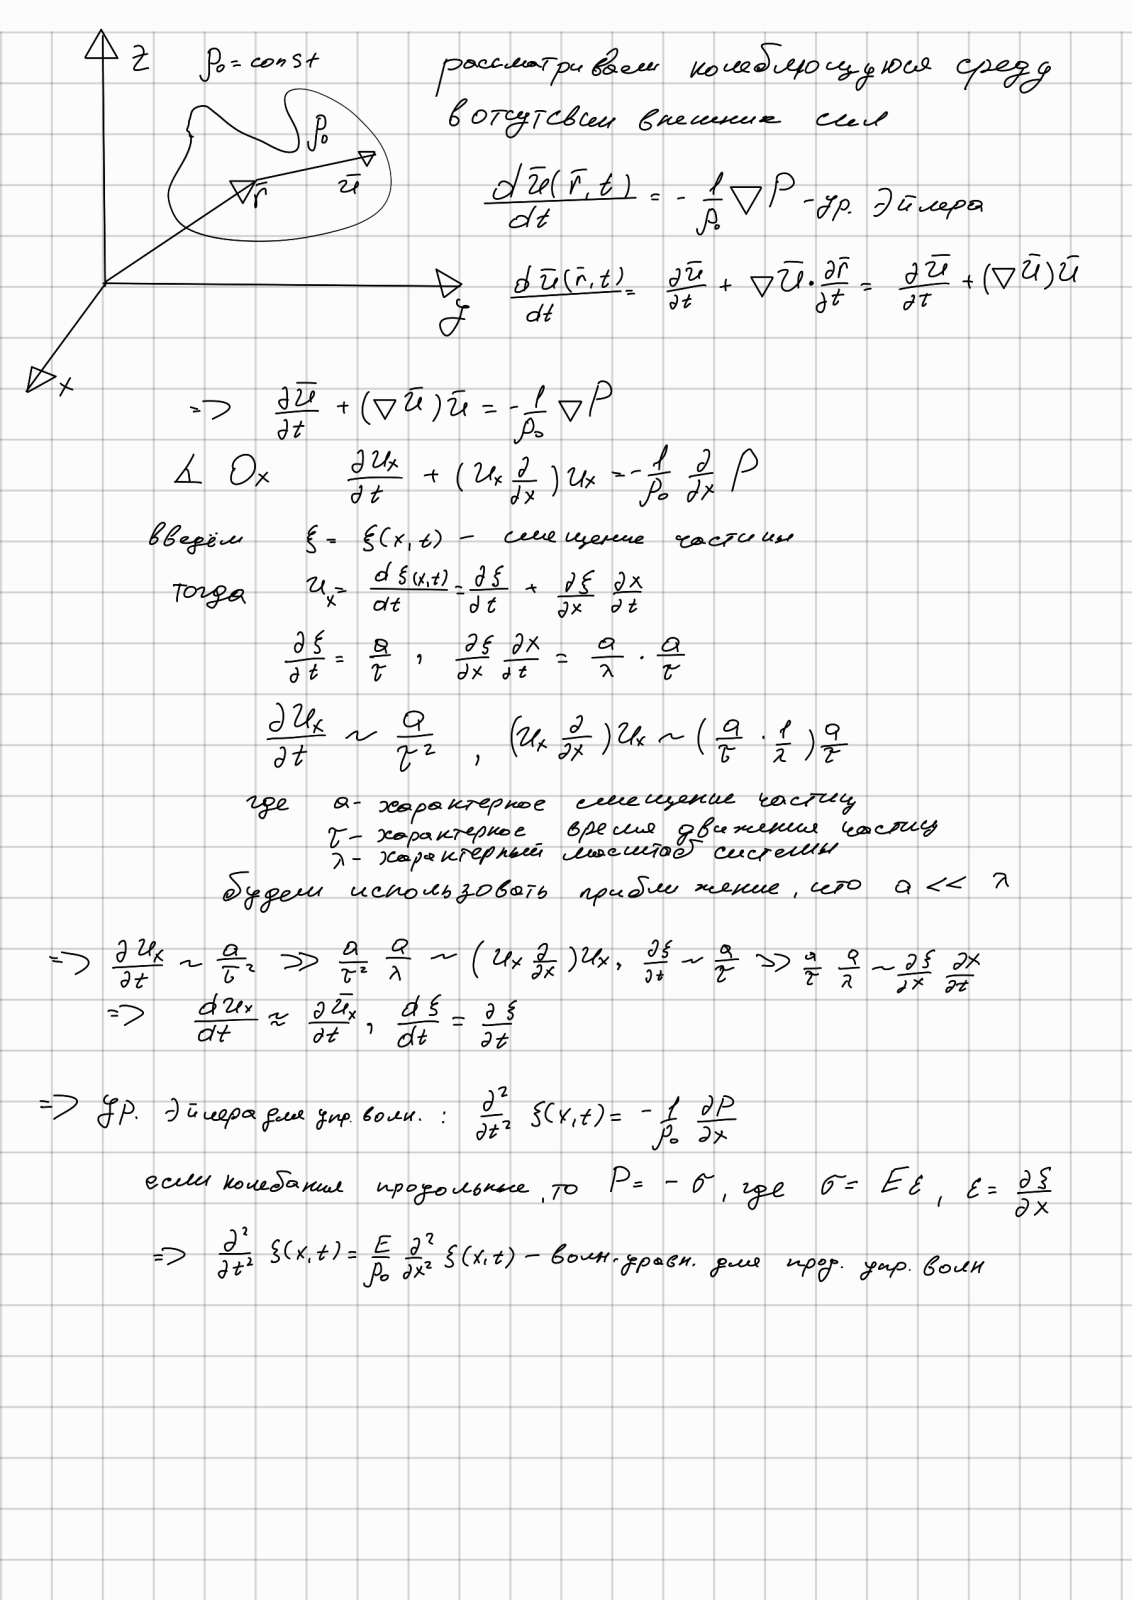 z
ρ₀ = const
рассматриваем колеблющуюся среду
в отсутсвии внешних сил
ρ₀
r̄
ū
y
x
dū(r̄, t)/dt = - 1/ρ₀ ∇P - ур. Эйлера
dū(r̄, t)/dt = ∂ū/∂t + ∇ū · ∂r̄/∂t = ∂ū/∂t + (∇ū)ū
=> ∂ū/∂t + (∇ū)ū = - 1/ρ₀ ∇P
∡ Ox ∂uₓ/∂t + (uₓ ∂/∂x)uₓ = - 1/ρ₀ ∂/∂x P
введём ξ = ξ(x, t) - смещение частицы
тогда uₓ = dξ(x, t)/dt = ∂ξ/∂t + ∂ξ/∂x ∂x/∂t
∂ξ/∂t = a/τ , ∂ξ/∂x ∂x/∂t = a/λ · a/τ
∂uₓ/∂t ~ a/τ² , (uₓ ∂/∂x)uₓ ~ (a/τ · 1/λ) a/τ
где a - характерное смещение частиц
τ - характерное время движения частиц
λ - характерный масштаб системы
будем использовать приближение, что a << λ
=> ∂uₓ/∂t ~ a/τ² >> a/τ² a/λ ~ (uₓ ∂/∂x)uₓ, ∂ξ/∂t ~ a/τ >> a/τ a/λ ~ ∂ξ/∂x ∂x/∂t
=> duₓ/dt ≈ ∂ūₓ/∂t, dξ/dt = ∂ξ/∂t
=> Ур. Эйлера для упр. волн. : ∂²/∂t² ξ(x, t) = - 1/ρ₀ ∂P/∂x
если колебания продольные, то P = - σ, где σ = Eε, ε = ∂ξ/∂x
=> ∂²/∂t² ξ(x, t) = E/ρ₀ ∂²/∂x² ξ(x, t) - волн. уравн. для прод. упр. волн